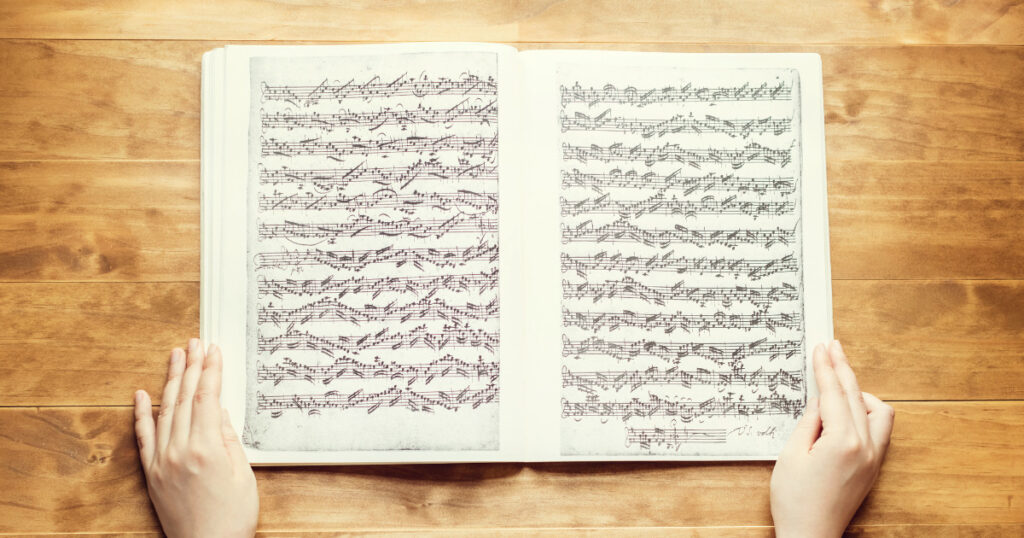 V.S. volti